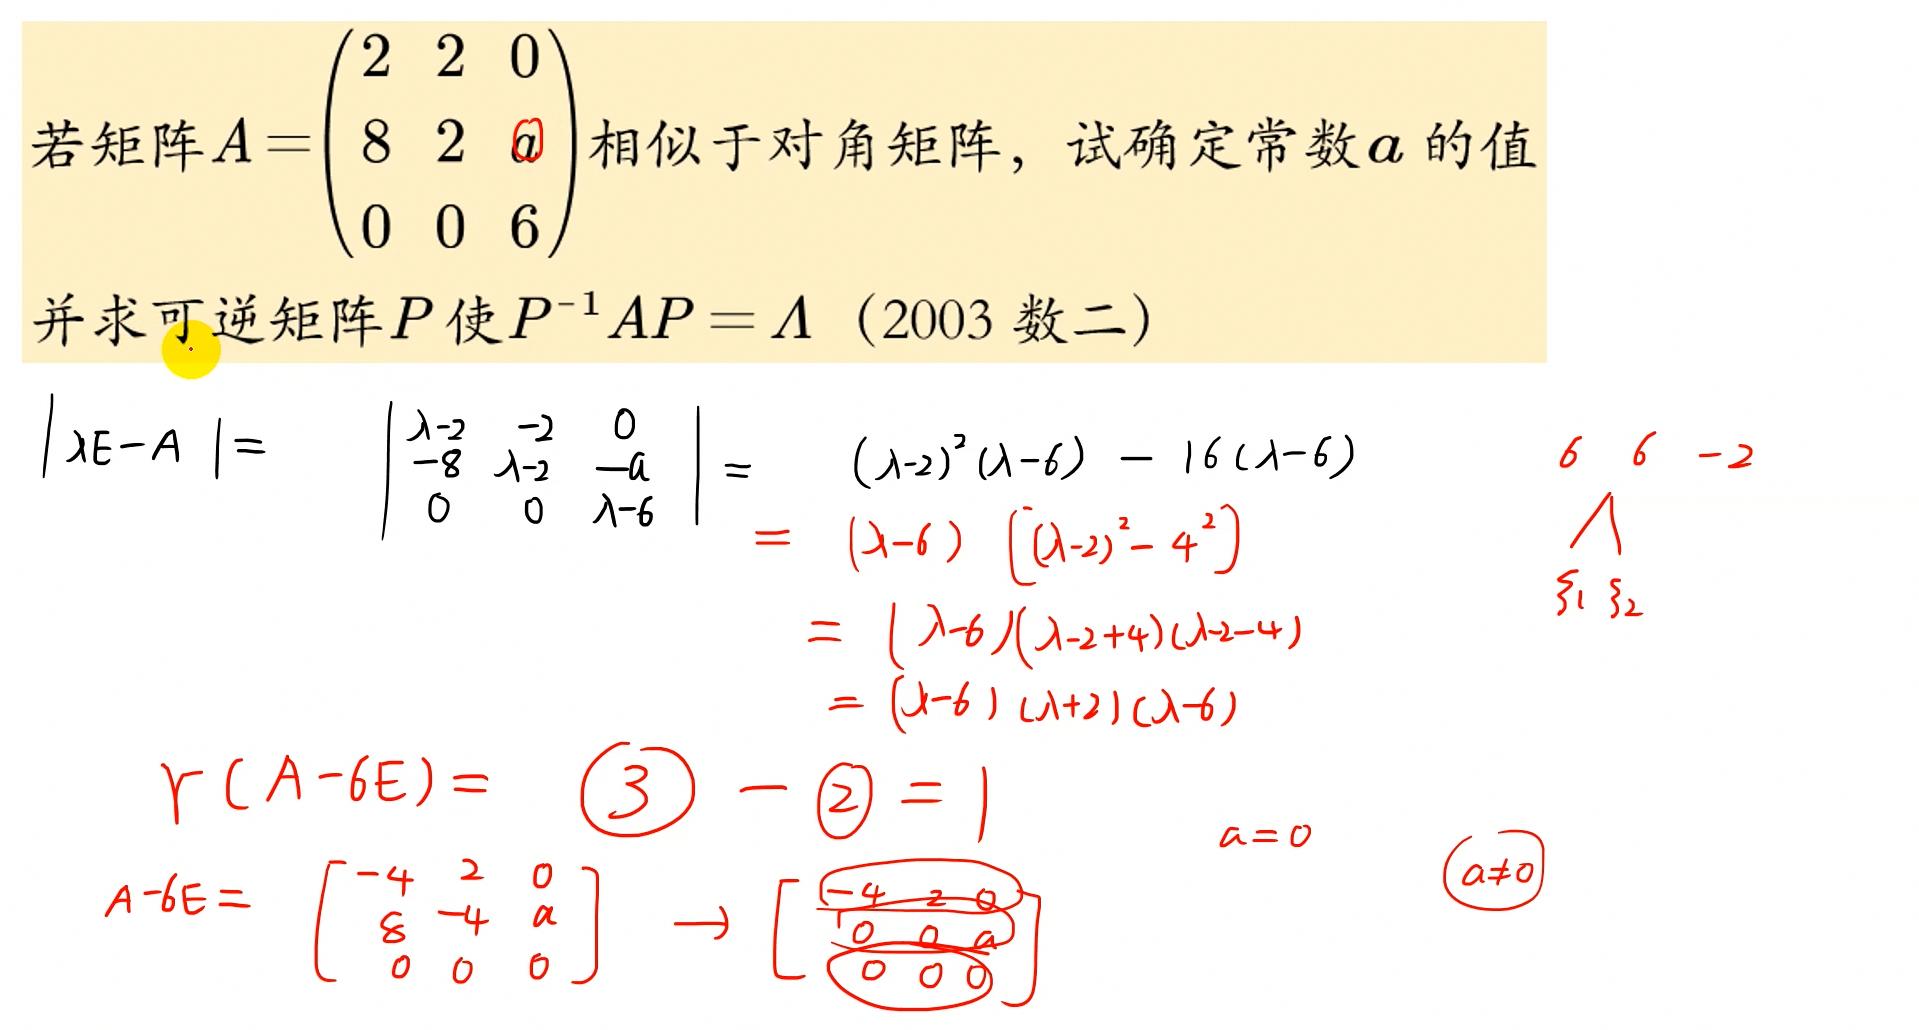 若矩阵 A = ( 2 2 0 相似于对角矩阵，试确定常数 a 的值
8 2 a
0 0 6 )
并求可逆矩阵 P 使 P⁻¹AP = Λ（2003 数二）
|λE-A| = | λ-2 -2 0
-8 λ-2 -a
0 0 λ-6 | = (λ-2)²(λ-6) - 16(λ-6)
6 6 -2
= (λ-6) [(λ-2)² - 4²]
ξ₁ ξ₂
= (λ-6)(λ-2+4)(λ-2-4)
= (λ-6)(λ+2)(λ-6)
r(A-6E) = 3 - 2 = 1
a=0 a≠0
A-6E = [ -4 2 0
8 -4 a
0 0 0 ] → [ -4 2 0
0 0 a
0 0 0 ]